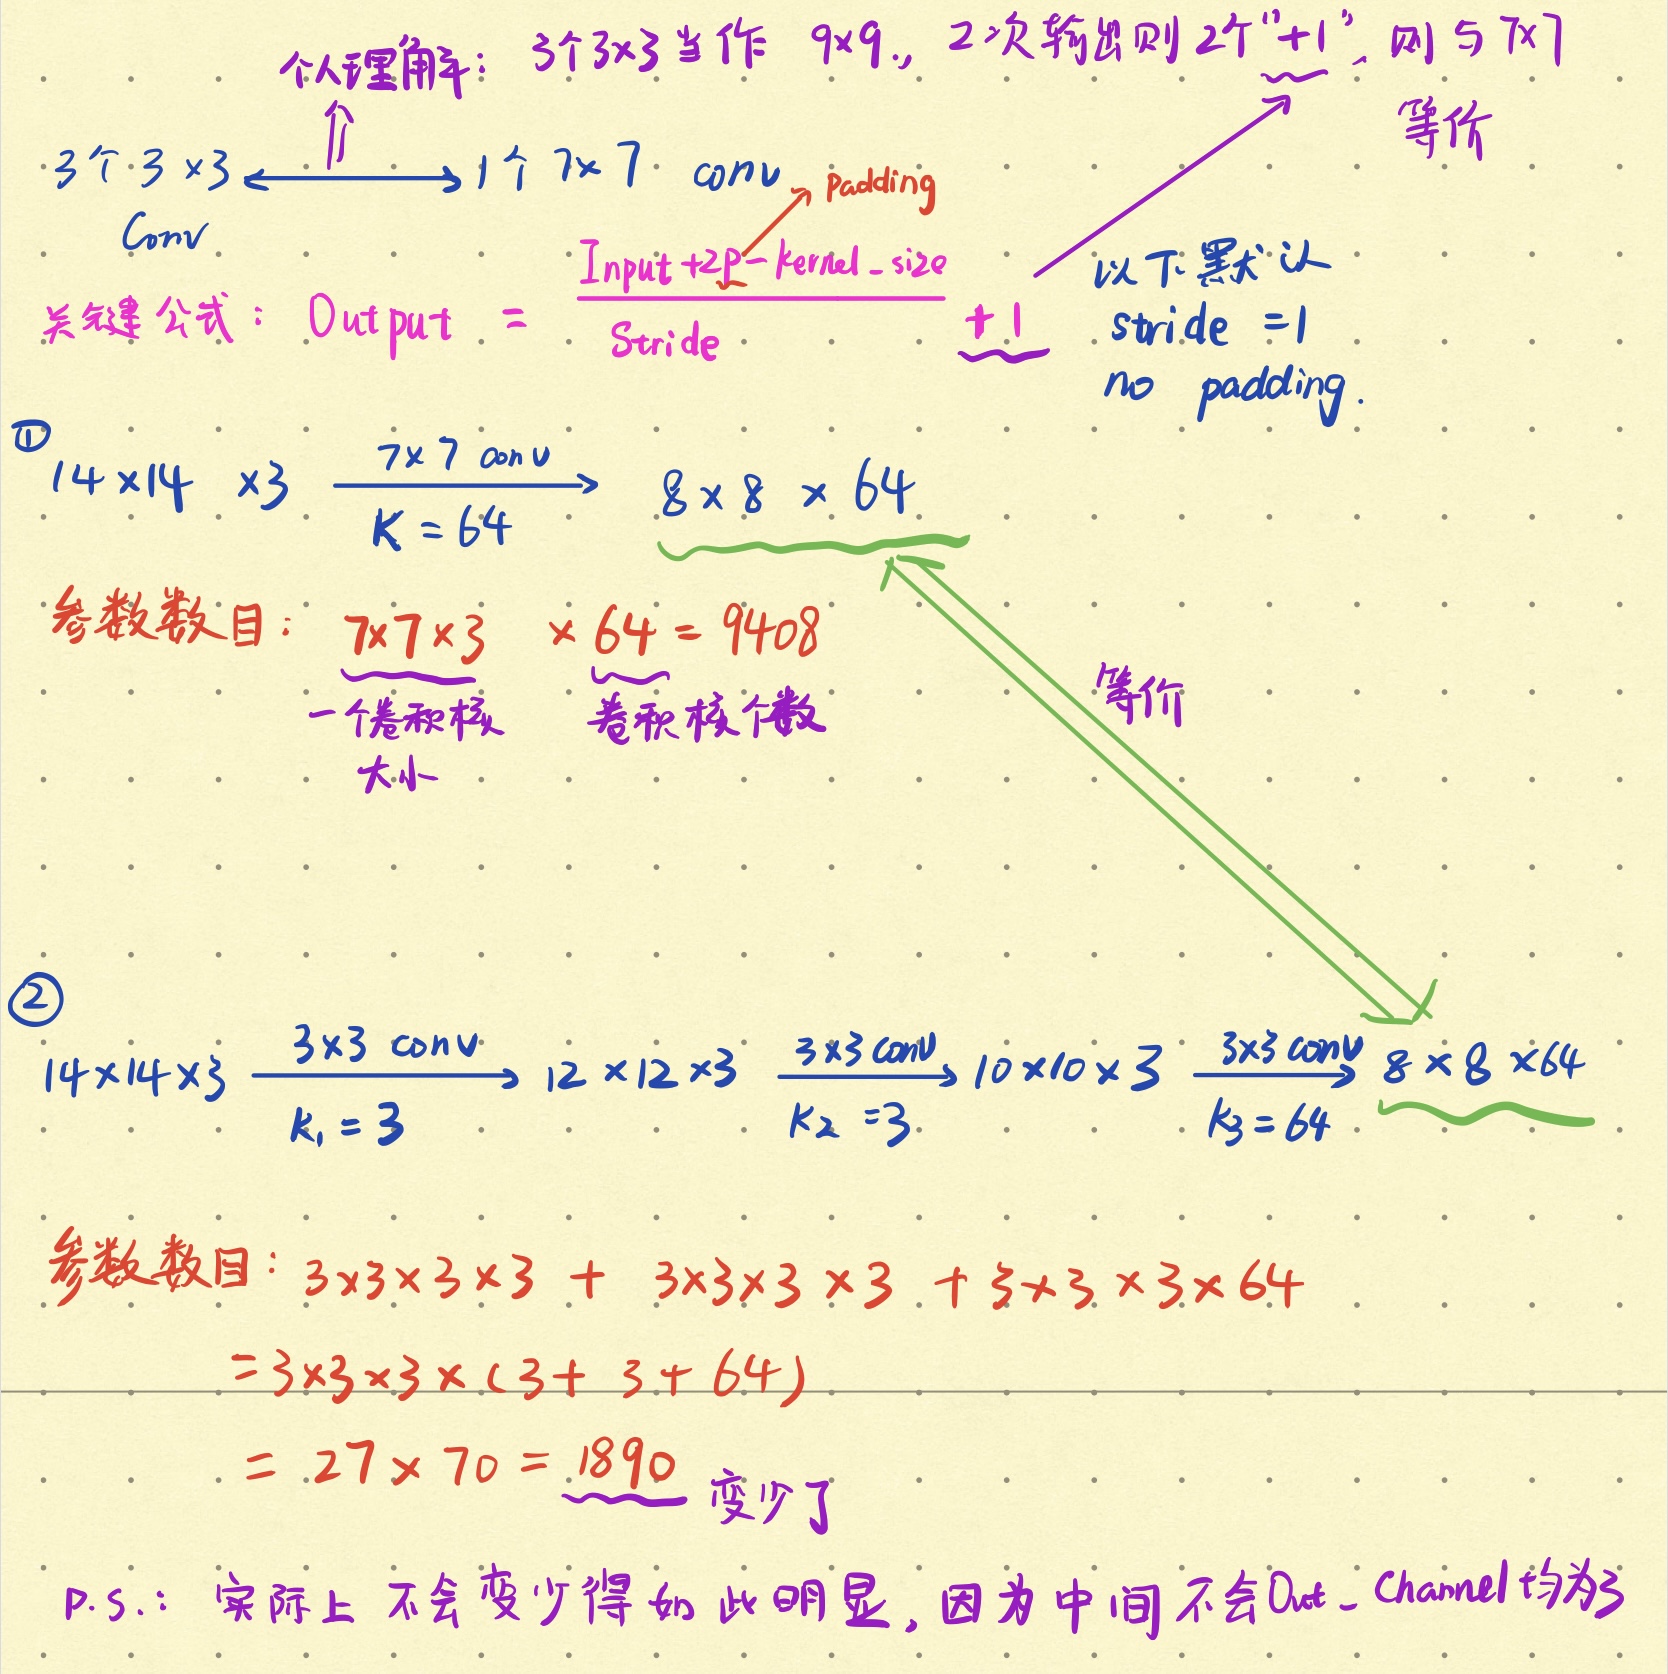 个人理解: 3个3×3当作 9×9., 2次输出则2个"+1", 则与7×7
等价
3个 3×3 Conv
1个 7×7 conv
padding
关键公式: Output = (Input+2P-kernel_size)/Stride +1
以下默认
stride =1
no padding.
①
14×14 ×3 7×7 conv K=64 8×8 ×64
参数数目: 7×7×3 ×64 = 9408
一个卷积核 卷积核个数
大小
等价
②
14×14×3 3×3 conv K₁=3 12×12×3 3×3 conv K₂=3 10×10×3 3×3 conv K₃=64 8×8×64
参数数目: 3×3×3×3 + 3×3×3×3 + 3×3×3×64
=3×3×3×(3+3+64)
= 27×70 = 1890 变少了
P.S.: 实际上不会变少得如此明显, 因为中间不会Out_Channel均为3